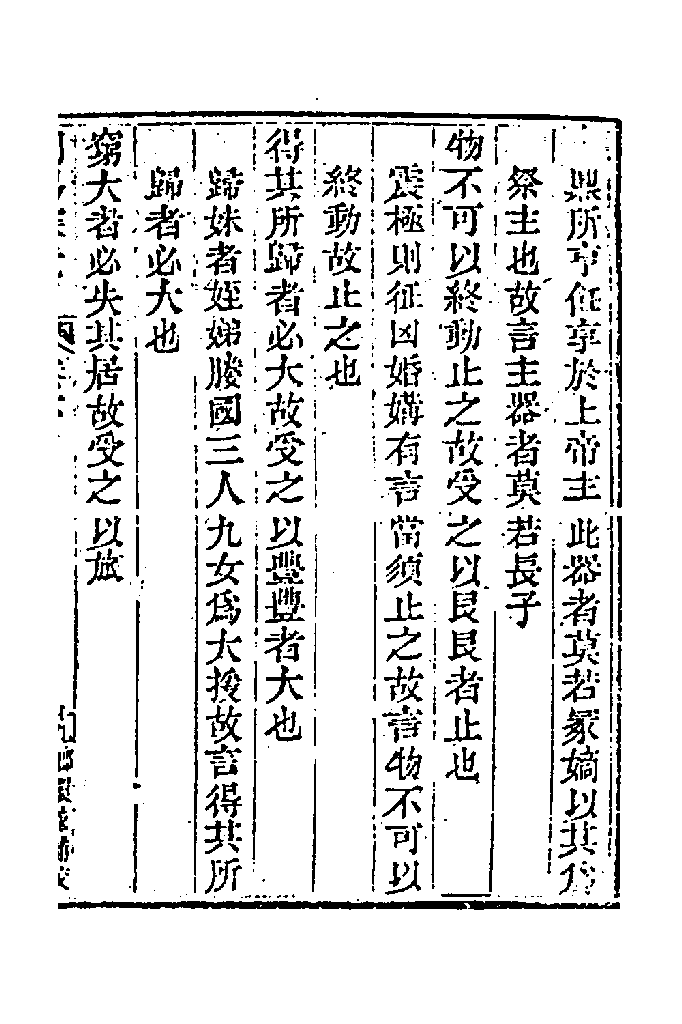 鼎所亨飪享於上帝主此器者莫若冢嫡以其爲
祭主也故言主器者莫若長子
物不可以終動止之故受之以艮艮者止也
震極則征凶婚媾有言當須止之故言物不可以
終動故止之也
得其所歸者必大故受之以豐豐者大也
歸妹者姪娣媵國三人九女爲大援故言得其所
歸者必大也
窮大者必失其居故受之以旅